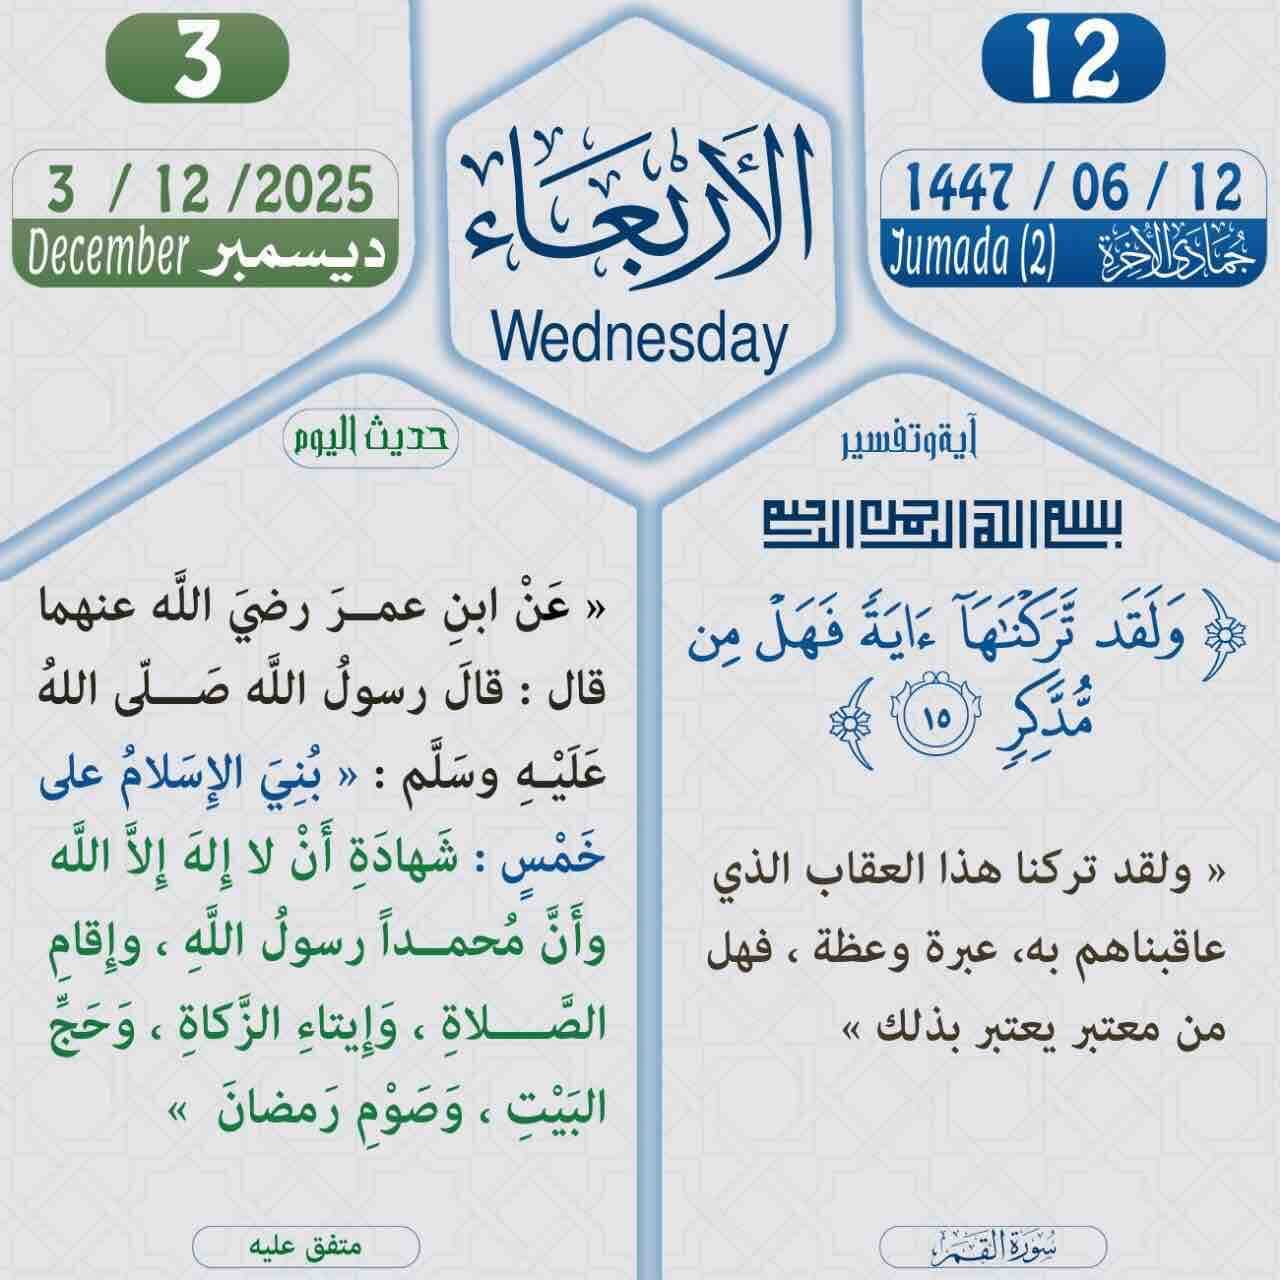 12
1447 / 06 / 12
جُمَادَى الآخِرَة Jumada (2)
الأَرْبِعَاء
Wednesday
3
3 / 12 /2025
December ديسمبر
آية وتفسير
بسم الله الرحمن الرحيم
﴿ وَلَقَد تَّرَكْنَٰهَآ ءَايَةً فَهَلْ مِن
مُّدَّكِرٍ ١٥ ﴾
« ولقد تركنا هذا العقاب الذي
عاقبناهم به، عبرة وعظة ، فهل
من معتبر يعتبر بذلك »
سُورَةُ القَمَر
حديث اليوم
« عَنْ ابنِ عمـرَ رضيَ اللَّه عنهما
قال : قالَ رسولُ اللَّه صَـلّى اللهُ
عَلَيْـهِ وسَلَّم : « بُنِيَ الإِسَلامُ على
خَمْسٍ : شَهادَةِ أَنْ لا إِلهَ إِلاَّ اللَّه
وأَنَّ مُحمـداً رسولُ اللَّهِ ، وإِقامِ
الصَّـلاةِ ، وَإِيتاءِ الزَّكاةِ ، وَحَجِّ
البَيْتِ ، وَصَوْمِ رَمضانَ »
متفق عليه